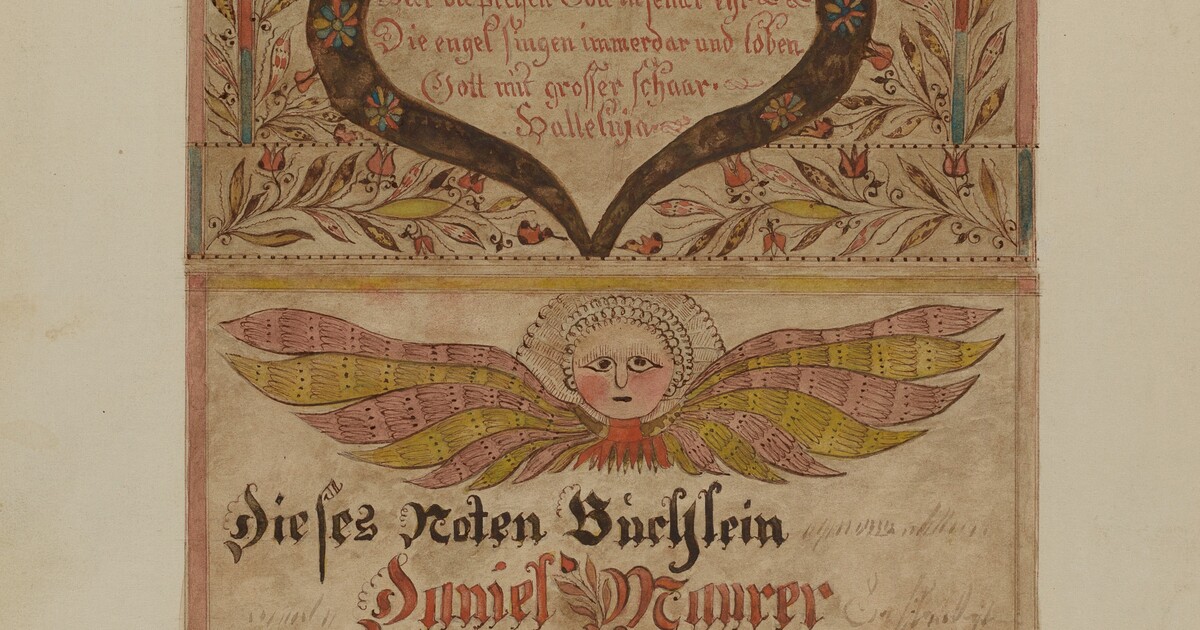 Die engel singen immerdar und loben
Gott mit grosser schaar.
Halleluja
Dieses Noten Büchlein
Daniel Maurer